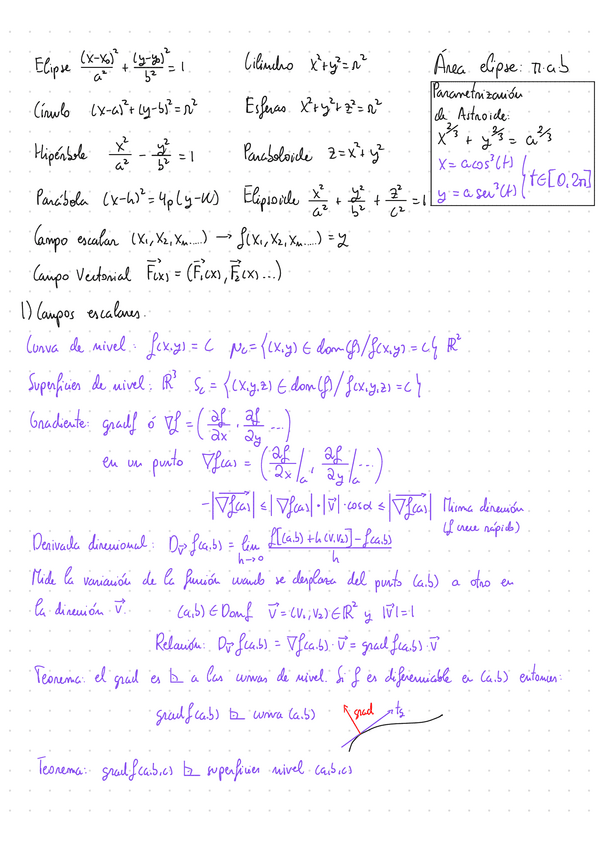 Elipse (x-x₀)²/a² + (y-y₀)²/b² = 1   Cilindro x²+y²=r²   Área elipse: π·a·b
Círculo (x-a)²+(y-b)²=r²   Esferas x²+y²+z²=r²
Hipérbole x²/a² - y²/b² = 1   Paraboloide z=x²+y²
Parábola (x-h)²=4p(y-k)   Elipsoide x²/a² + y²/b² + z²/c² = 1
Parametrización
da Astroide:
x^2/3 + y^2/3 = a^2/3
x = a cos³(t)
y = a sen³(t) } t∈[0,2π]
Campo escalar (x₁, x₂, xₙ.....) → f(x₁, x₂, xₙ.....) = y
Campo Vectorial F⃗(x) = (F⃗₁(x), F⃗₂(x)...)
1) Campos escalares.
Curva de nivel: f(x,y) = C   N_c={(x,y) ∈ dom(f)/f(x,y)=c} ℝ²
Superficies de nivel: ℝ³   S_c = {(x,y,z) ∈ dom(f)/f(x,y,z)=c}
Gradiente: gradf ó ∇f = (∂f/∂x, ∂f/∂y ...)
en un punto ∇f(a) = (∂f/∂x|ₐ, ∂f/∂y|ₐ ...)
-|∇f(a)| ≤ |∇f(a)|·|v⃗|·cosα ≤ |∇f(a)| Misma dirección
(f crece rápido)
Derivada direccional: D_v⃗ f(a,b) = lim h→0 f[(a,b)+h(v₁,v₂)]-f(a,b)/h
Mide la variación de la función cuando se desplaza del punto (a,b) a otro en
la dirección v⃗.   (a,b) ∈ Domf   v⃗=(v₁,v₂)∈ℝ² y |v⃗|=1
Relación: D_v⃗ f(a,b) = ∇f(a,b)·v⃗ = grad f(a,b)·v⃗
Teorema: el grad es ⊾ a las curvas de nivel. Si f es diferenciable en (a,b) entonces:
grad f(a,b) ⊾ curva (a,b)
grad
tg
Teorema: grad f(a,b,c) ⊾ superficies nivel (a,b,c)